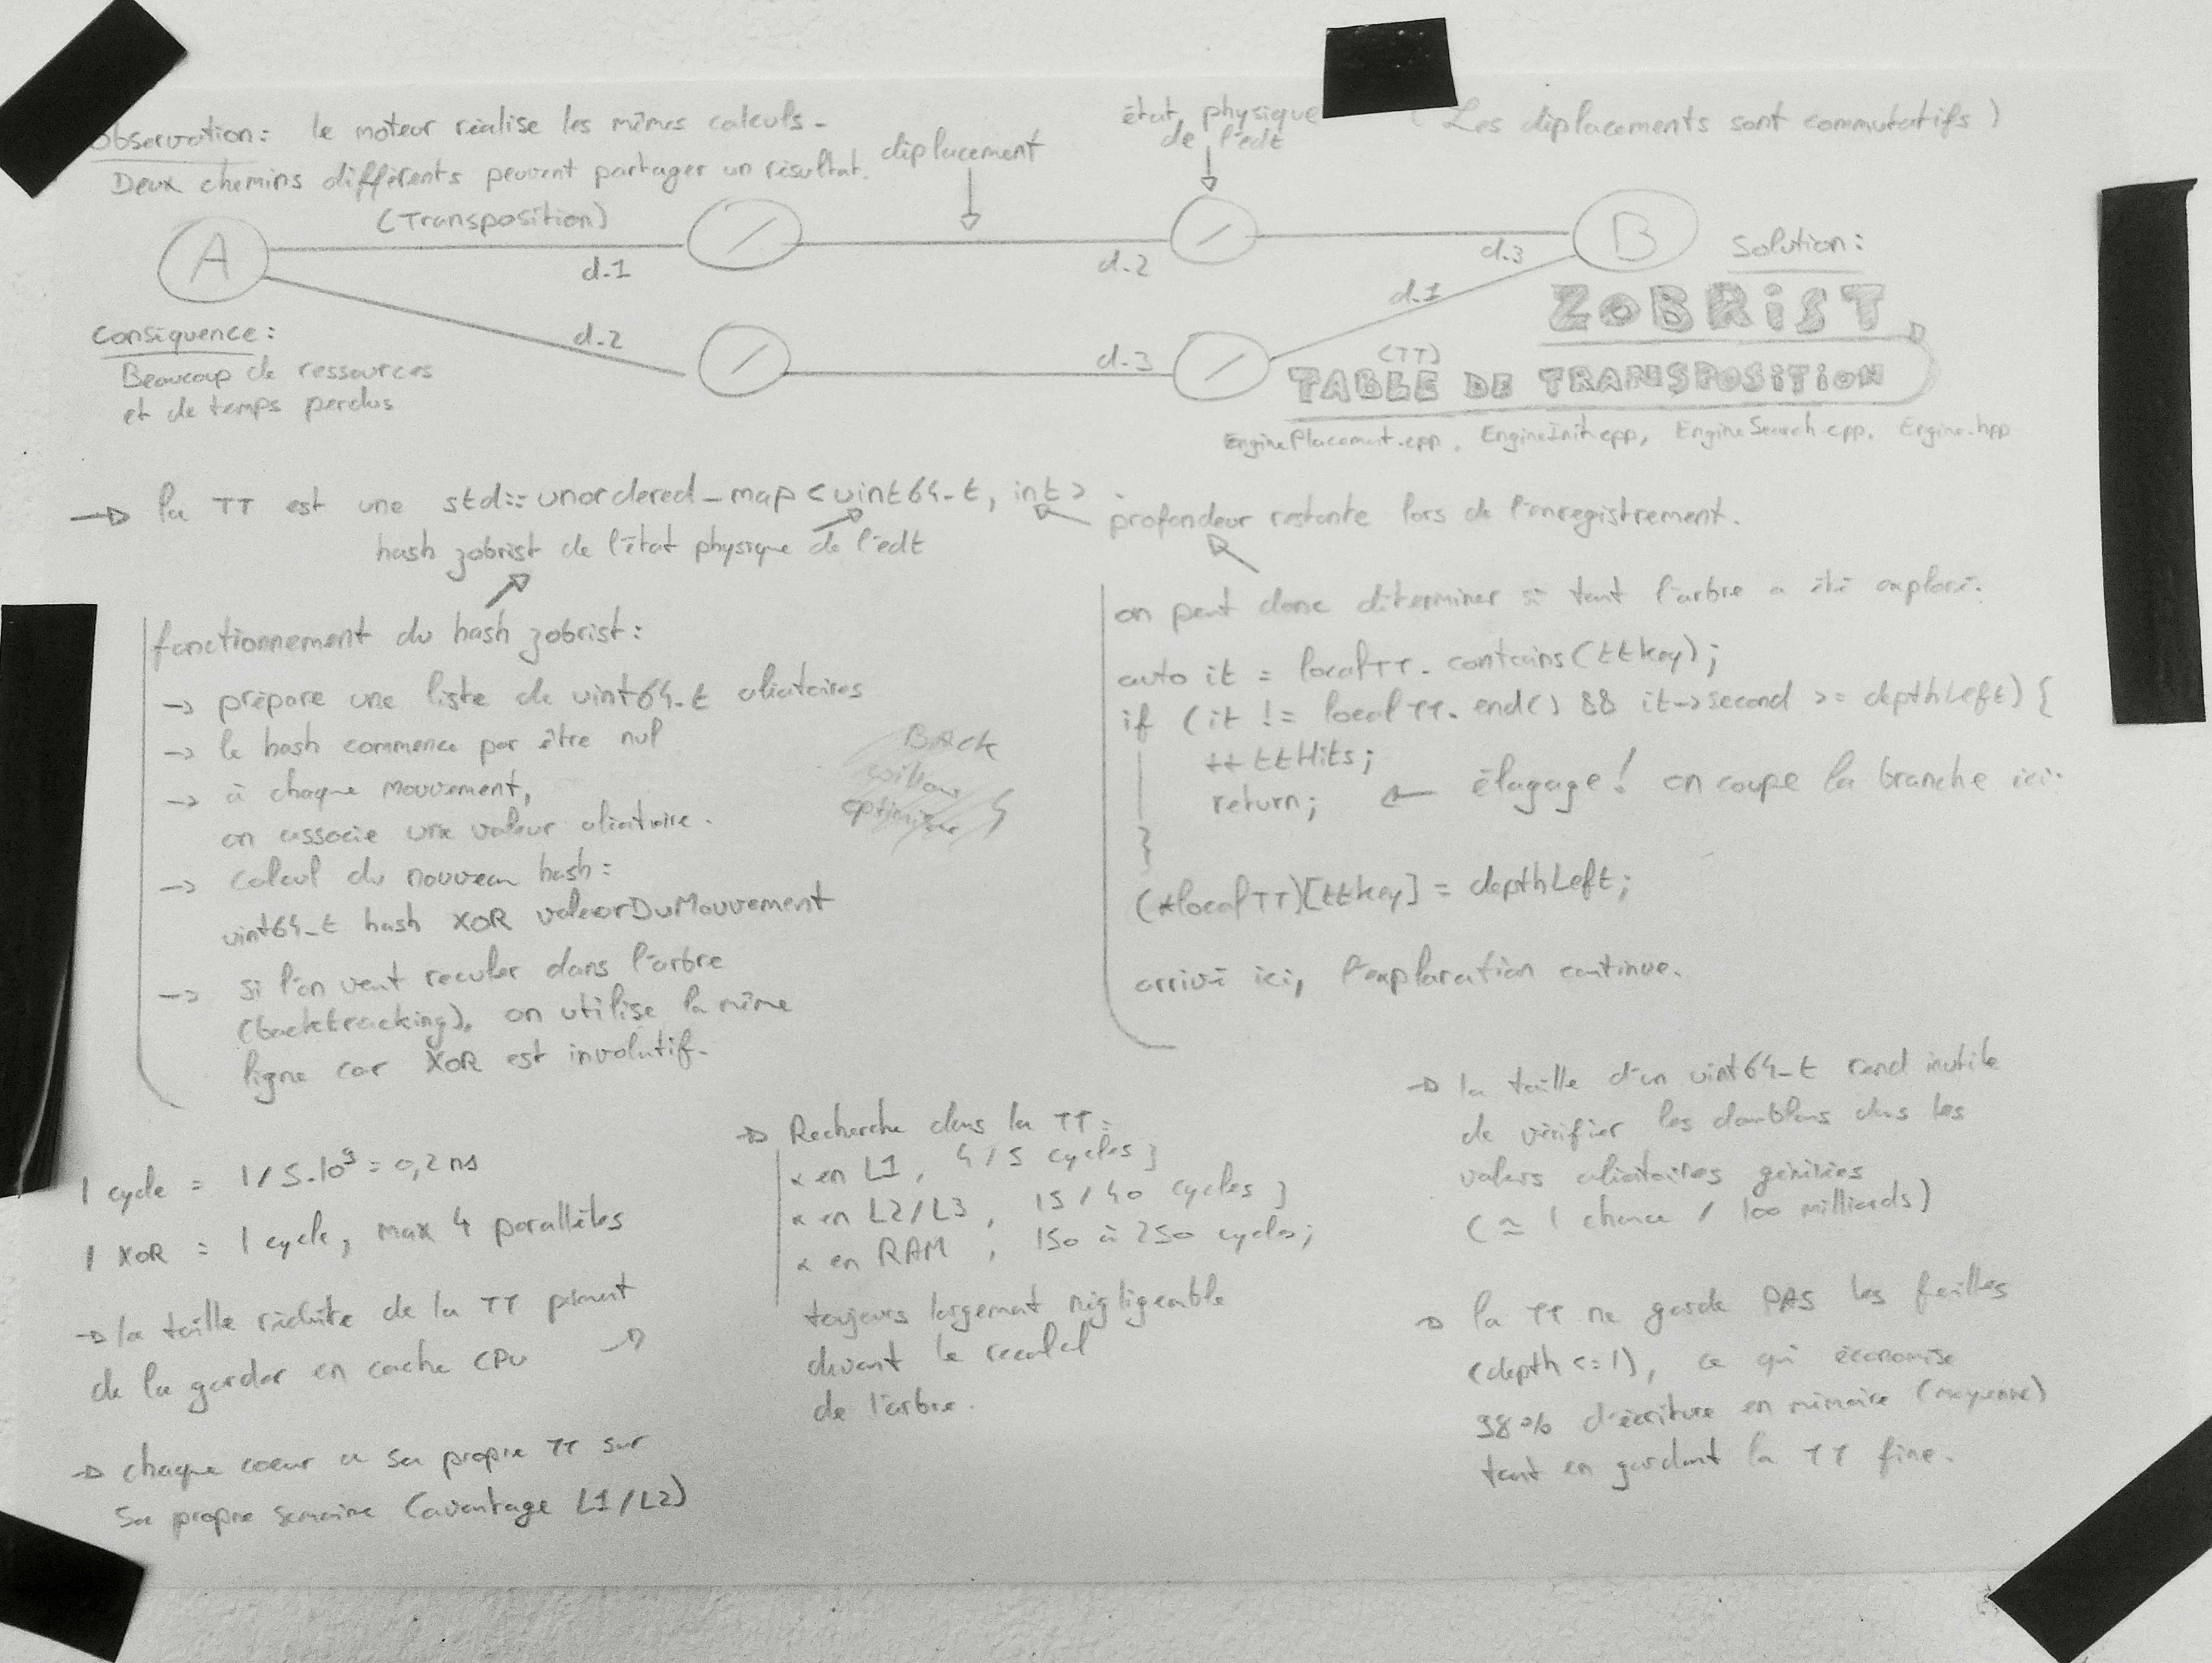 Observation: le moteur réalise les mêmes calculs.
Deux chemins différents peuvent partager un résultat.
(Transposition)
déplacement
état physique
de l'edt
(Les déplacements sont commutatifs)
A
d.1
d.2
d.3
B
d.2
d.3
d.1
Conséquence:
Beaucoup de ressources
et de temps perdus
Solution:
ZOBRIST
(TT)
TABLE DE TRANSPOSITION
EnginePlacement.cpp, EngineInit.cpp, EngineSearch.cpp, Engine.hpp
→ la TT est une std::unordered_map<uint64_t, int>
hash zobrist de l'état physique de l'edt
profondeur restante lors de l'enregistrement.
fonctionnement du hash zobrist:
→ prépare une liste de uint64_t aléatoires
→ le hash commence par être nul
→ à chaque mouvement,
on associe une valeur aléatoire.
→ calcul du nouveau hash:
uint64_t hash XOR valeurDuMouvement
→ si l'on veut reculer dans l'arbre
(backtracking), on utilise la même
ligne car XOR est involutif.
BACK
on peut donc déterminer si tout l'arbre a été exploré.
auto it = localTT.contains(ttkey);
if (it != localTT.end() && it->second >= depthLeft) {
++ttHits;
return; ← élagage! on coupe la branche ici.
}
(*localTT)[ttkey] = depthLeft;
arrivé ici, l'exploration continue.
1 cycle = 1/5.10⁹ = 0,2 ns
1 XOR = 1 cycle, max 4 parallèles
→ la taille réduite de la TT permet
de la garder en cache CPU
→ chaque coeur a sa propre TT sur
sa propre semaine (avantage L1/L2)
→ Recherche dans la TT:
× en L1, 4/5 cycles;
× en L2/L3, 15/40 cycles;
× en RAM, 150 à 250 cycles;
toujours largement négligeable
devant le recalcul
de l'arbre.
→ la taille d'un uint64_t rend inutile
de vérifier les doublons dans les
valeurs aléatoires générées
(≃ 1 chance / 100 milliards)
→ la TT ne garde PAS les feuilles
(depth <= 1), ce qui économise
98% d'écriture en mémoire (moyenne)
tout en gardant la TT fine.